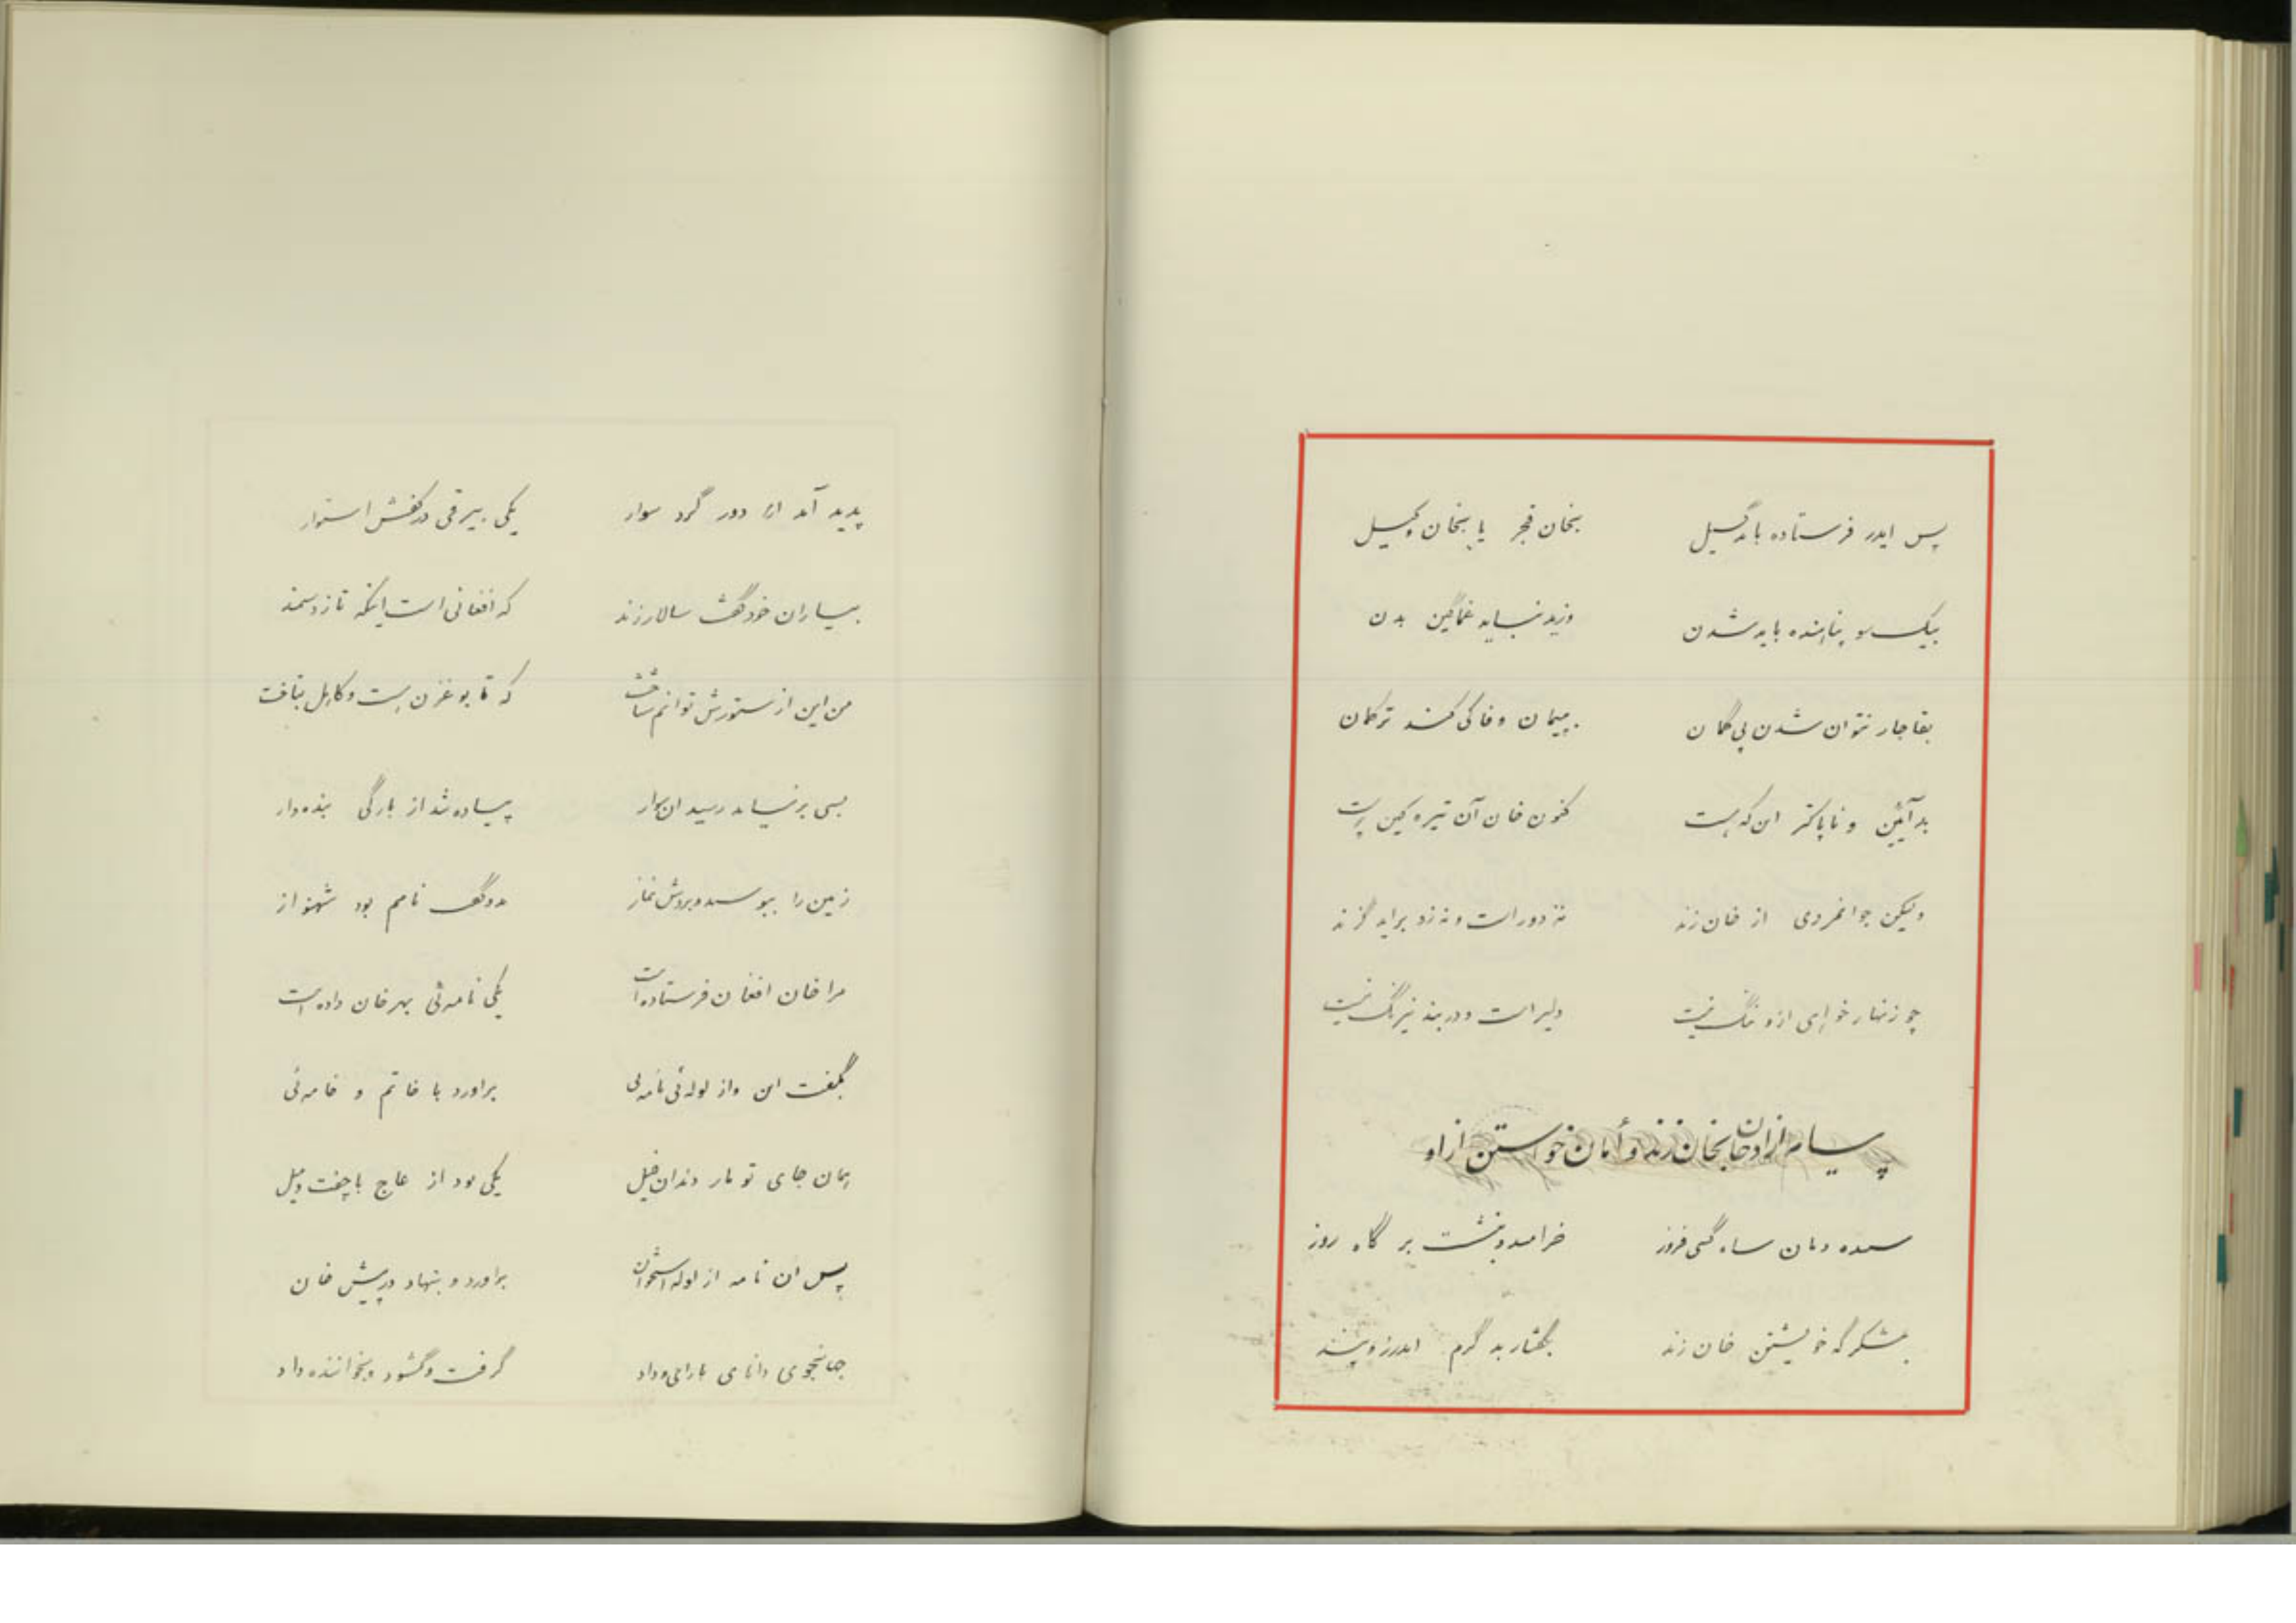 پس ایدر فرستاده باید گسیل بخان قجر یا بخان وکیل
بیک سو پناهنده باید شدن وزید نباید غماگین بدن
بقاجار نتوان شدن بی گمان به پیمان وفا کی کند ترکمان
بد آئین و ناپاکتر ان که هست کنون خان آن تیره کین پرست
ولیکن جوانمردی از خان زند نه دور است و نه زد براید گزند
چو زنهار خواهی ازو ننگ نیست دلیر است و در بند نیرنگ نیست
پیام ازادخان بخان زند و أمان خواستن از او
سپیده دمان شاه گیتی فروز خرامید و بنشست بر گاه روز
بلشکرگه خویشتن خان زند بگفتار بد گرم اندرز و پند
پدید آمد از دور گرد سوار یکی بیرقی در کفش استوار
بیاران خود گفت سالار زند که افغانی است اینکه تازد سمند
من این از ستورش توانم شناخت که تا بو غزنی است و کابل بتاخت
بسی بر نیامد رسید ان سوار پیاده شد از بارگی بنده وار
زمین را ببوسید و بردش نماز بدو گفت نامم بود شهنواز
مرا خان افغان فرستاده است یکی نامه ئی بهر خان داده است
بگفت این و از لوله ئی نامه ئی براورد با خاتم و خامه ئی
همان جای تومار دندان فیل یکی بود از عاج با چفت و میل
پس ان نامه از لوله استخوان براورد و بنهاد در پیش خان
جهانجوی دانای با رای و داد گرفت و گشود و بخواننده داد